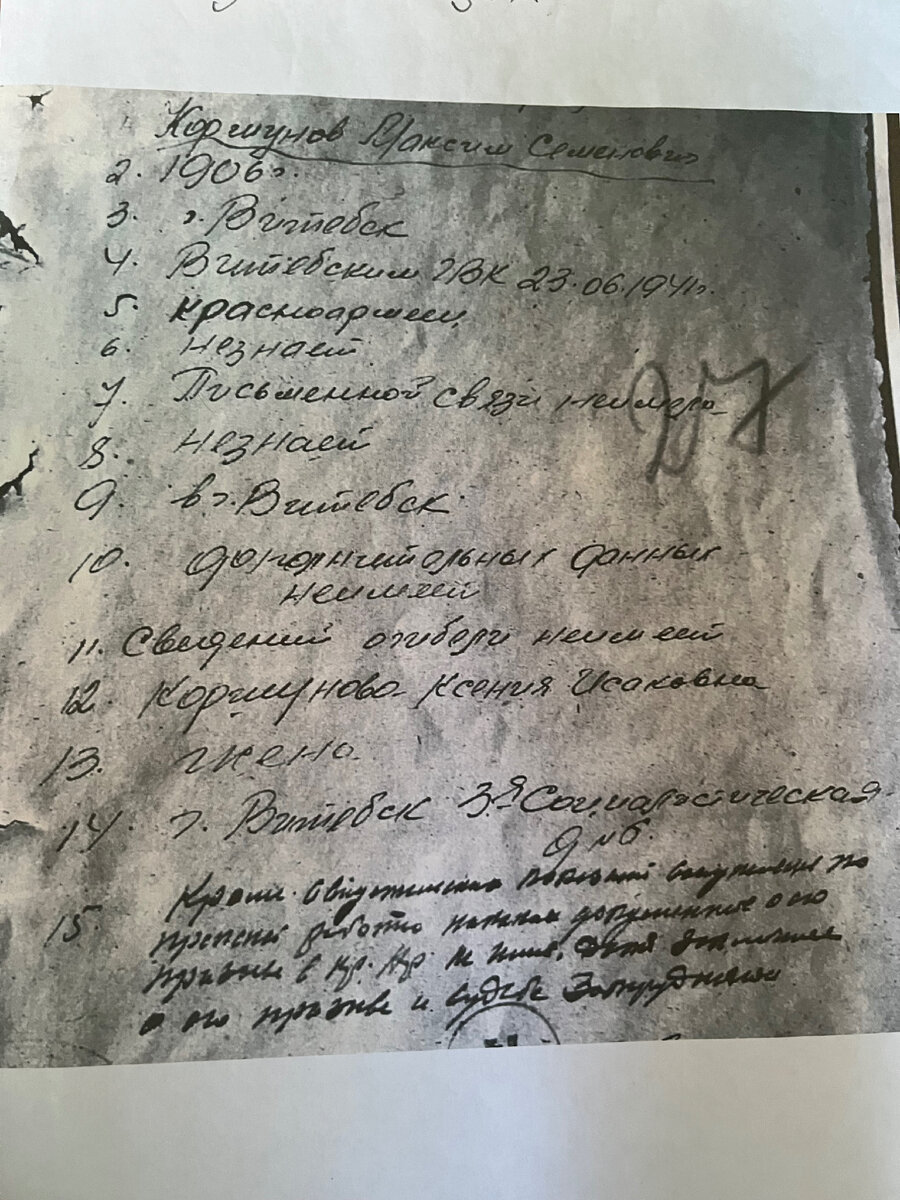 1. Коршунов Максим Семенович
2. 1906 г.
3. г. Витебск
4. Витебским ГВК 23.06.1941г.
5. красноармеец
6. незнает
7. Письменной связи неимела
8. незнает
9. в г. Витебск
10. дополнительных данных
неимеет
11. Сведений огибели неимеет
12. Коршунова Ксения Исаковна
13. жена
14. г. Витебск 3-я Социалистическая
д №6.
15. Кроме
работы документов о его
призыве в
о его призыве и судьбе